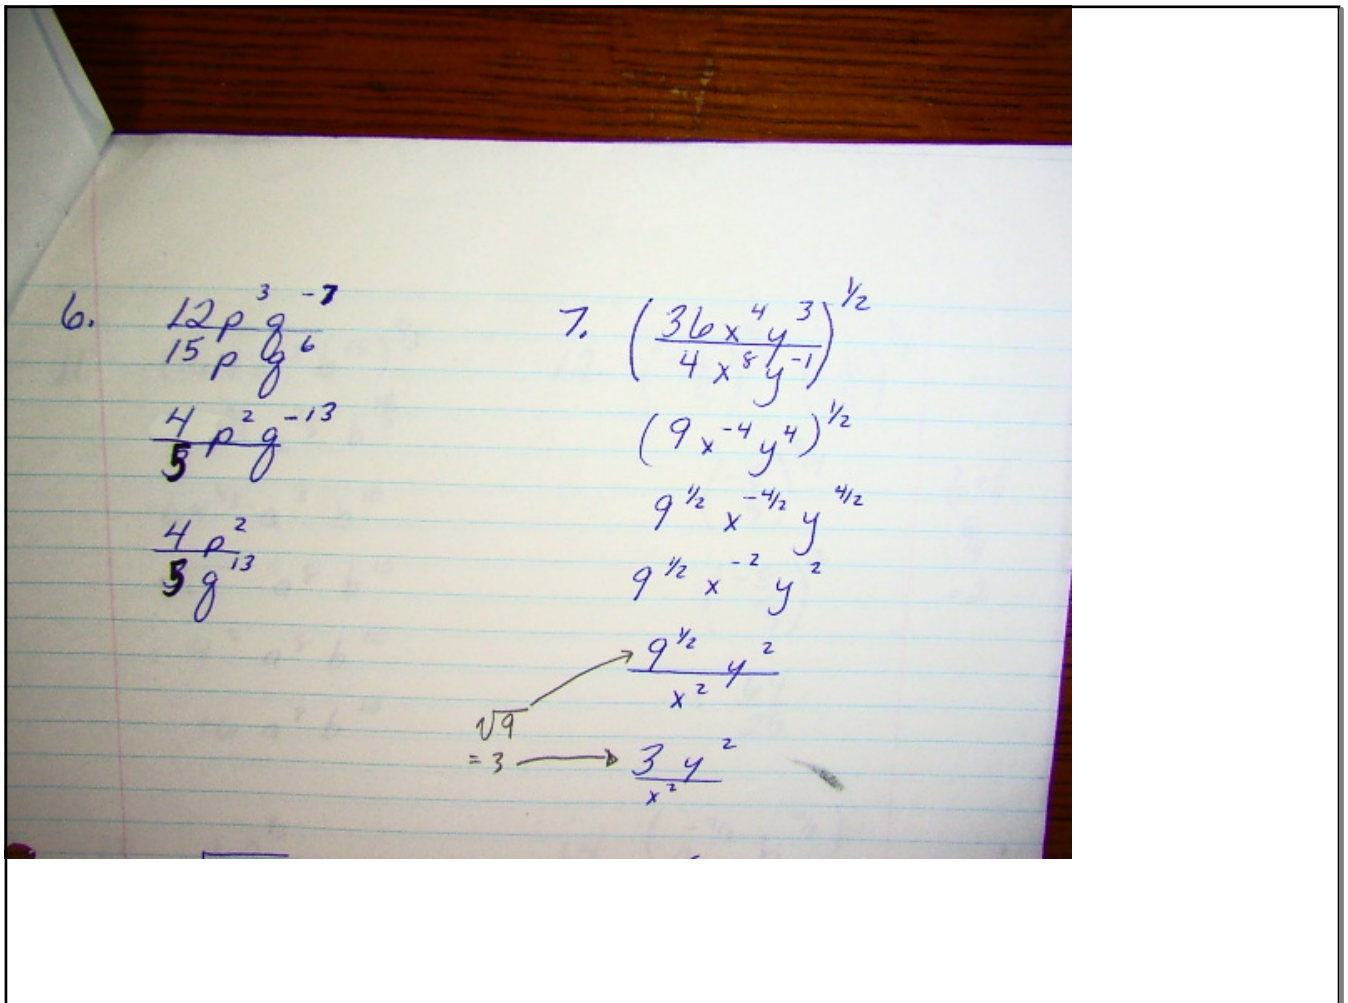 6.
12p³q⁻⁷
15pq⁶
4/5 p²q⁻¹³
4p²
5q¹³
7. (36x⁴y³ / 4x⁸y⁻¹)^1/2
(9x⁻⁴y⁴)^1/2
9^1/2 x^-4/2 y^4/2
9^1/2 x⁻² y²
9^1/2 y²
x²
√9
= 3
3y²
x²